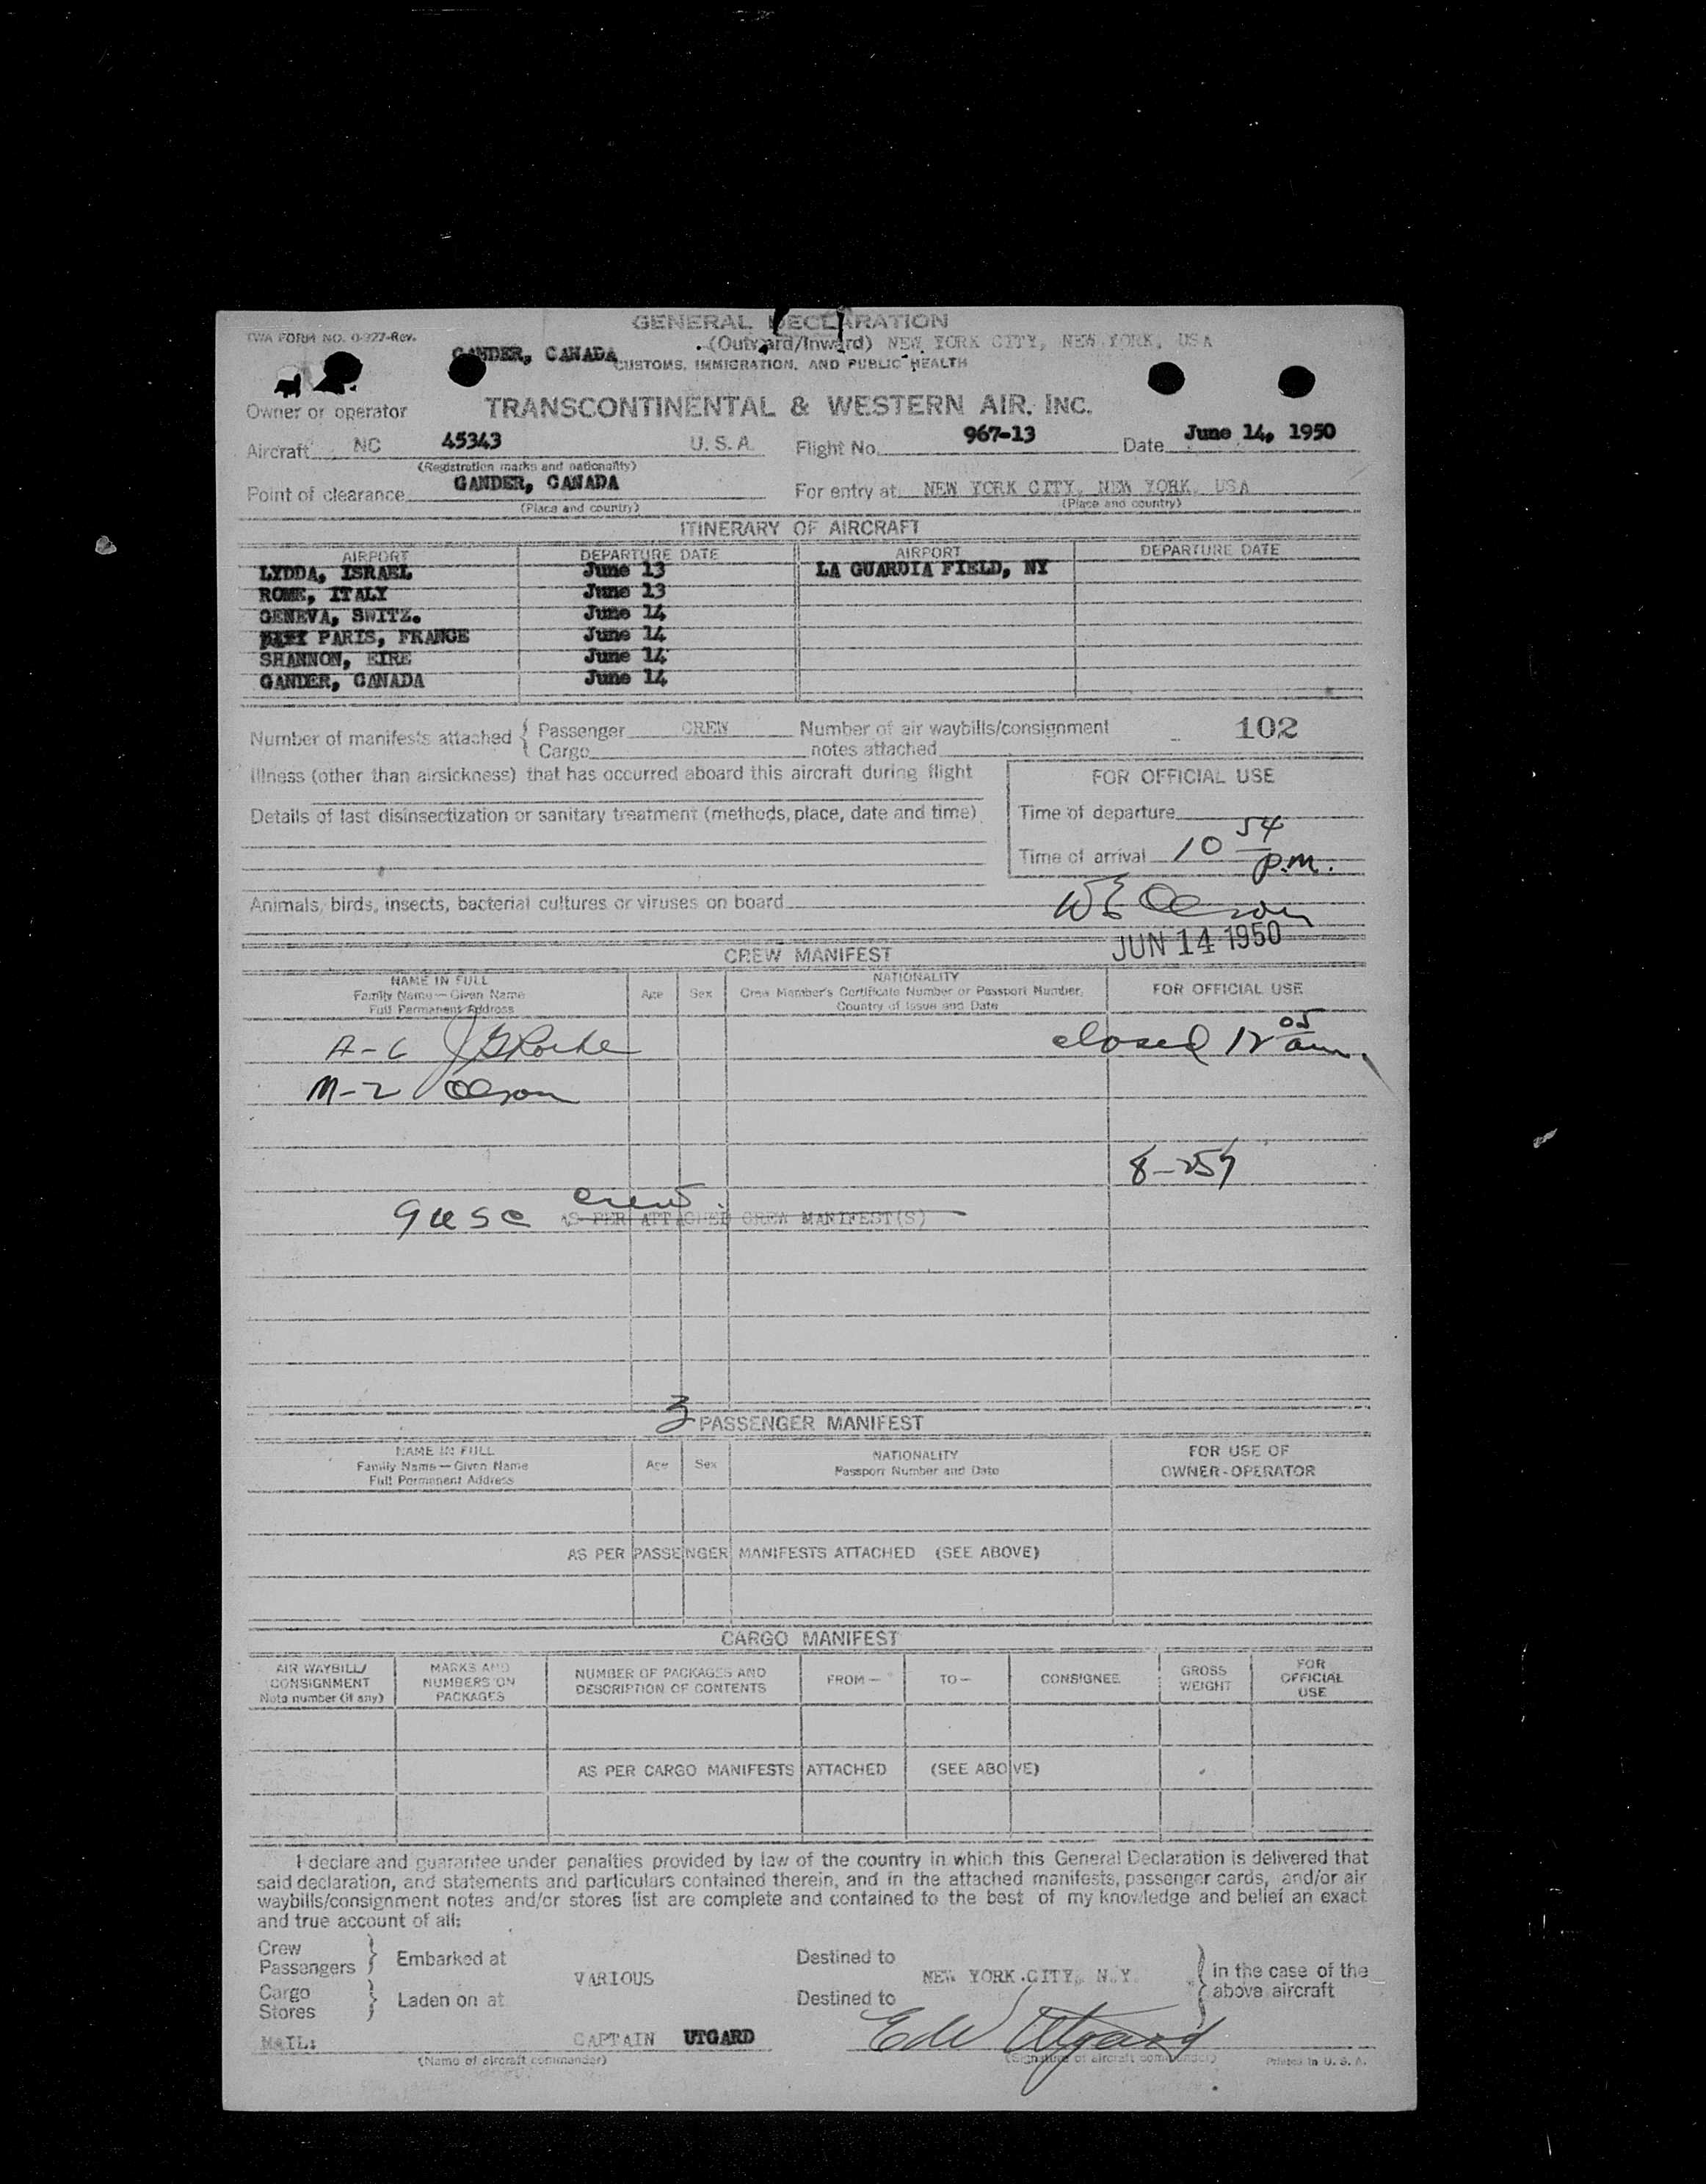 GENERAL DECLARATION
TWA FORM NO. 0-927-Rev.
(Outward/Inward) NEW YORK CITY, NEW YORK, USA
GANDER, CANADA
CUSTOMS, IMMIGRATION, AND PUBLIC HEALTH
Owner or operator TRANSCONTINENTAL & WESTERN AIR, INC.
Aircraft NC 45343 U. S. A. Flight No. 967-13 Date June 14, 1950
(Registration marks and nationality)
Point of clearance GANDER, CANADA For entry at NEW YORK CITY, NEW YORK, USA
(Place and country) (Place and country)
ITINERARY OF AIRCRAFT
AIRPORT DEPARTURE DATE AIRPORT DEPARTURE DATE
LYDDA, ISRAEL June 13 LA GUARDIA FIELD, NY
ROME, ITALY June 13
GENEVA, SWITZ. June 14
PARIS, FRANCE June 14
SHANNON, EIRE June 14
GANDER, CANADA June 14
Number of manifests attached { Passenger CREW Number of air waybills/consignment 102
Cargo notes attached
Illness (other than airsickness) that has occurred aboard this aircraft during flight
FOR OFFICIAL USE
Details of last disinsectization or sanitary treatment (methods, place, date and time)
Time of departure
Time of arrival 10 54 p.m.
Animals, birds, insects, bacterial cultures or viruses on board
WE Olson
JUN 14 1950
CREW MANIFEST
NAME IN FULL
Family Name — Given Name
Full Permanent Address
Age Sex
NATIONALITY
Crew Member's Certificate Number or Passport Number,
Country of Issue and Date
FOR OFFICIAL USE
A-6 closed 12 05 am
M-2 Olson
8-257
9 USC crew
AS PER ATTACHED CREW MANIFEST(S)
3
PASSENGER MANIFEST
NAME IN FULL
Family Name — Given Name
Full Permanent Address
Age Sex
NATIONALITY
Passport Number and Date
FOR USE OF
OWNER-OPERATOR
AS PER PASSENGER MANIFESTS ATTACHED (SEE ABOVE)
CARGO MANIFEST
AIR WAYBILL/
CONSIGNMENT
Note number (if any)
MARKS AND
NUMBERS ON
PACKAGES
NUMBER OF PACKAGES AND
DESCRIPTION OF CONTENTS
FROM —
TO —
CONSIGNEE
GROSS
WEIGHT
FOR
OFFICIAL
USE
AS PER CARGO MANIFESTS ATTACHED (SEE ABOVE)
I declare and guarantee under penalties provided by law of the country in which this General Declaration is delivered that
said declaration, and statements and particulars contained therein, and in the attached manifests, passenger cards, and/or air
waybills/consignment notes and/or stores list are complete and contained to the best of my knowledge and belief an exact
and true account of all:
Crew
Passengers } Embarked at Destined to
VARIOUS NEW YORK CITY, N.Y. in the case of the
Cargo above aircraft
Stores } Laden on at Destined to
MAIL: CAPTAIN UTGARD Ed W Utgard
(Name of aircraft commander) (Signature of aircraft commander) Printed in U. S. A.